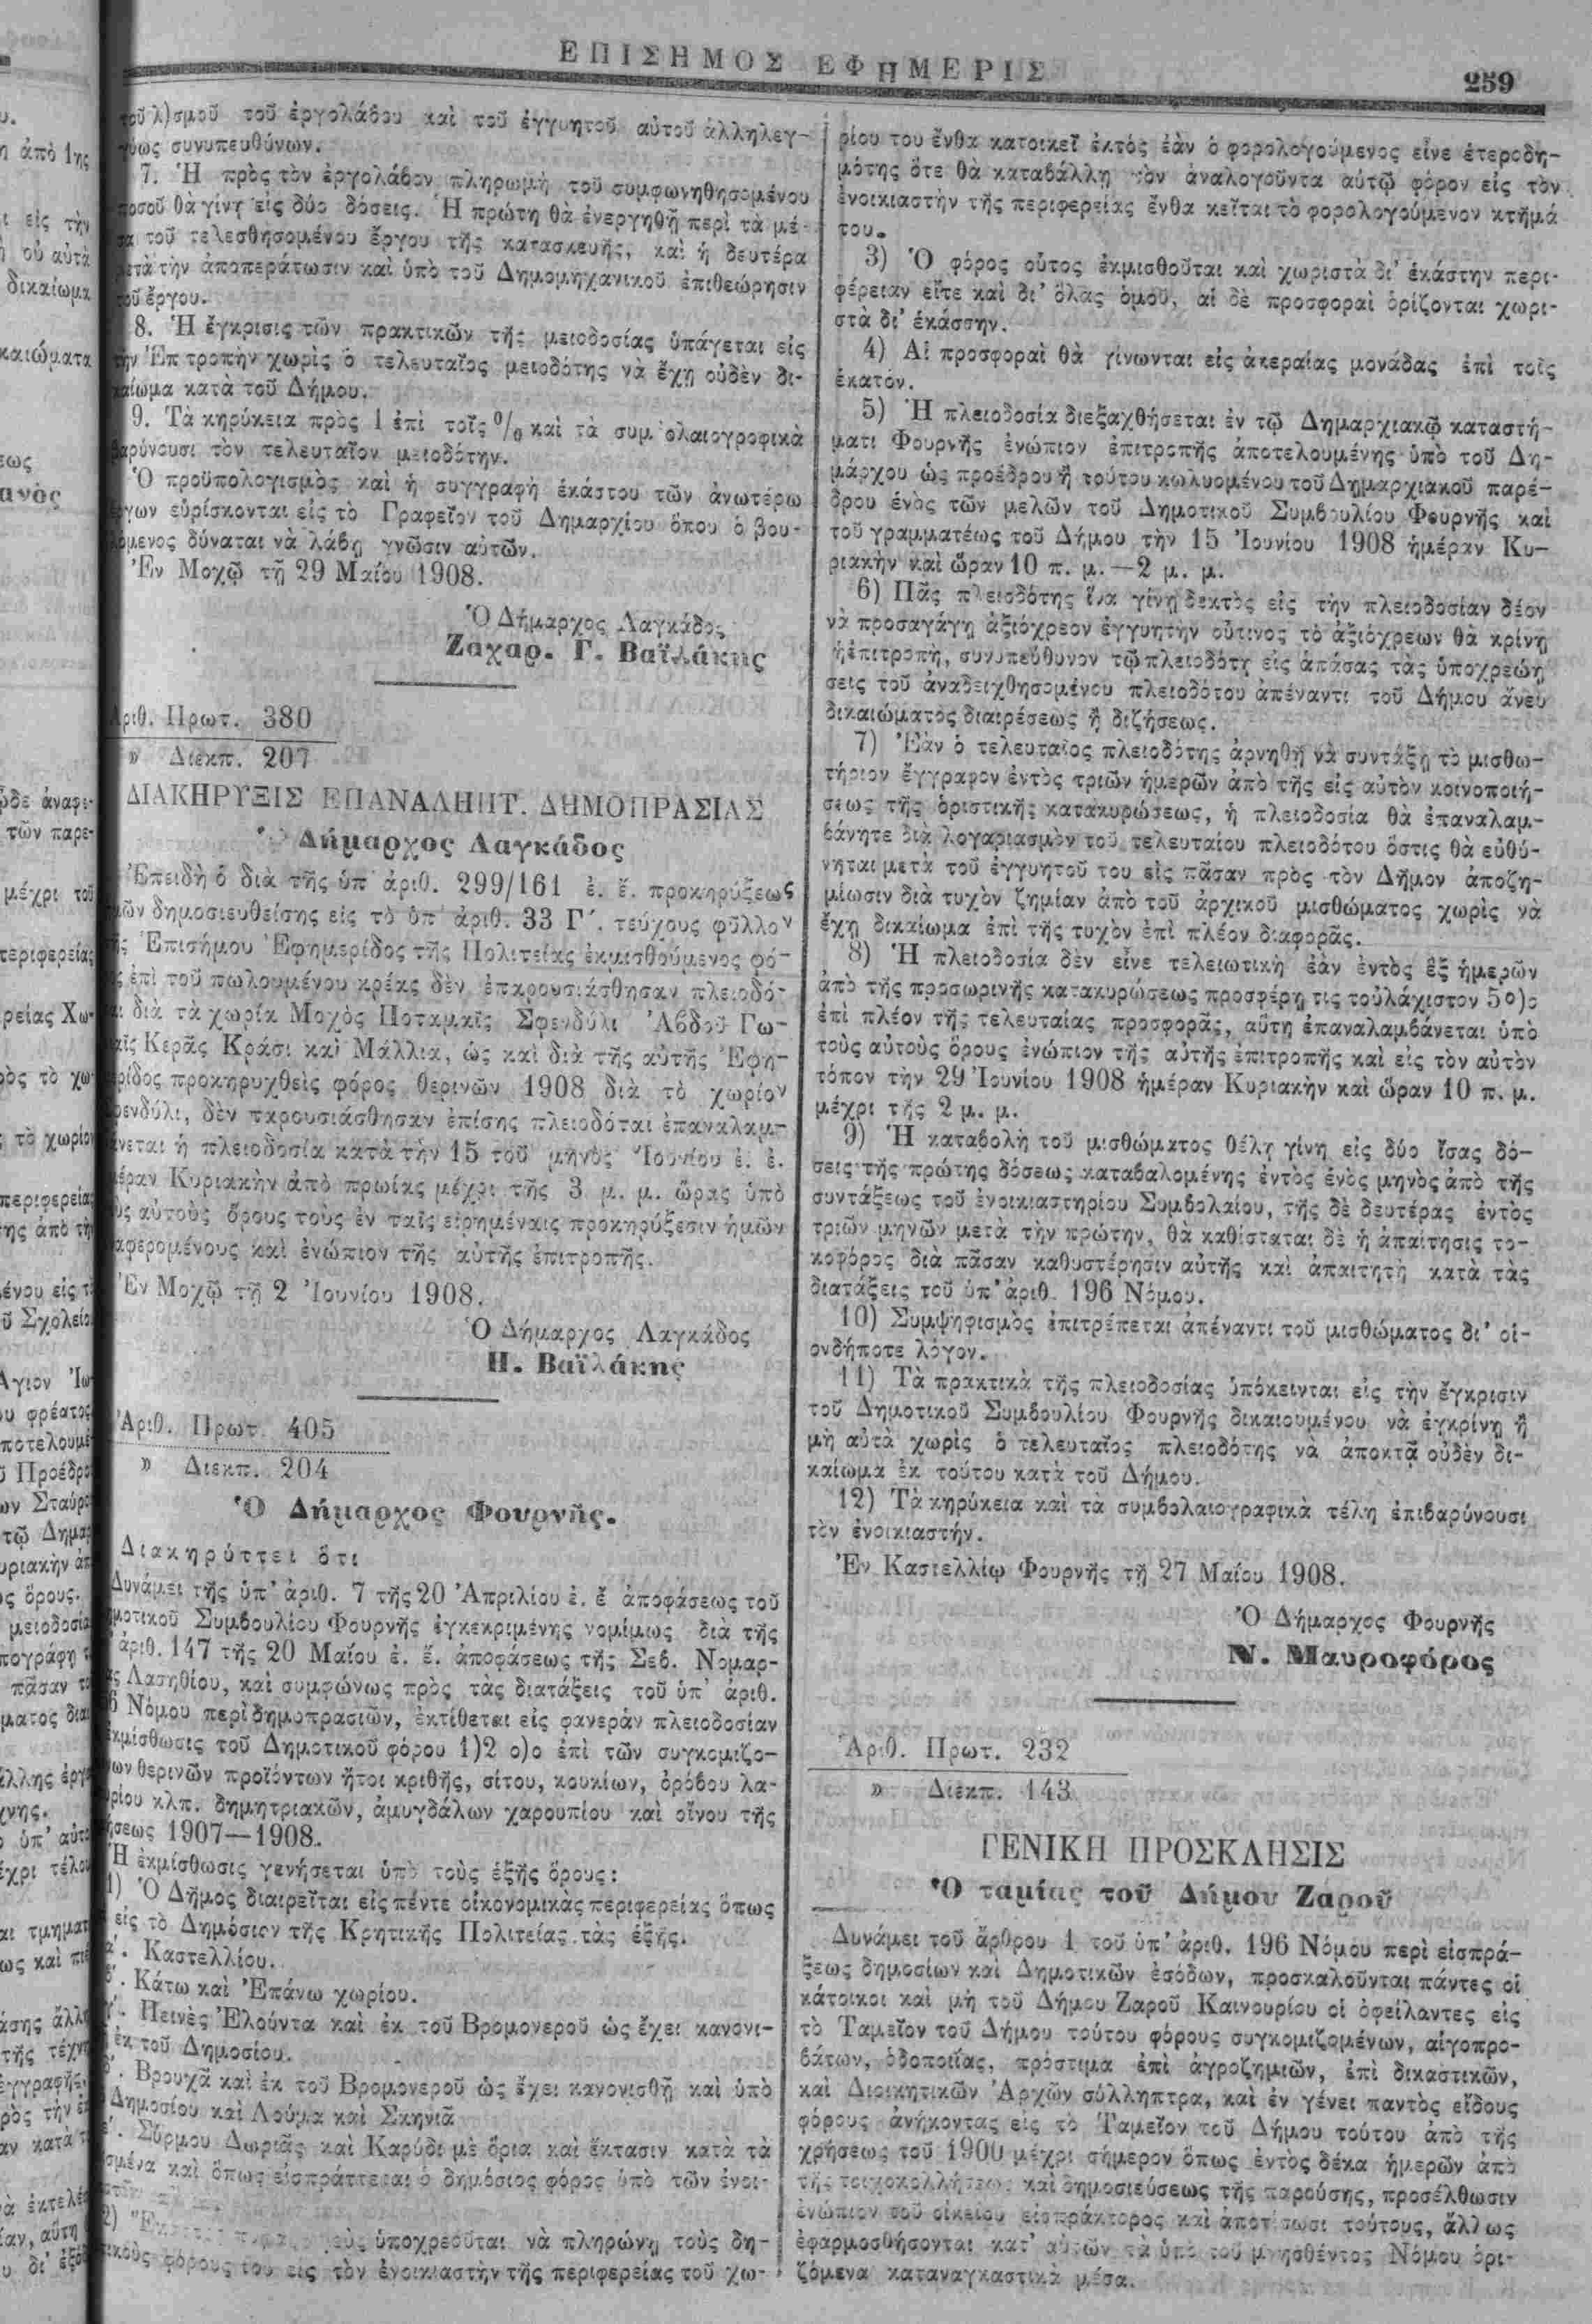 ΕΠΙΣΗΜΟΣ ΕΦΗΜΕΡΙΣ
259
τοῦ λ)σμοῦ τοῦ ἐργολάβου καὶ τοῦ ἐγγυητοῦ αὐτοῦ ἀλληλεγ-
γύως συνυπευθύνων.
7. Ἡ πρὸς τὸν ἐργολάβον πληρωμὴ τοῦ συμφωνηθησομένου
ποσοῦ θὰ γίνῃ εἰς δύο δόσεις. Ἡ πρώτη θὰ ἐνεργηθῇ περὶ τὰ μέ-
σα τοῦ τελεσθησομένου ἔργου τῆς κατασκευῆς, καὶ ἡ δευτέρα
μετὰ τὴν ἀποπεράτωσιν καὶ ὑπὸ τοῦ Δημομηχανικοῦ ἐπιθεώρησιν
τοῦ ἔργου.
8. Ἡ ἔγκρισις τῶν πρακτικῶν τῆς μειοδοσίας ὑπάγεται εἰς
τὴν Ἐπ τροπὴν χωρὶς ὁ τελευταῖος μειοδότης νὰ ἔχῃ οὐδὲν δι-
καίωμα κατὰ τοῦ Δήμου.
9. Τὰ κηρύκεια πρὸς 1 ἐπὶ τοῖς 0/0 καὶ τὰ συμ ολαιογραφικὰ
βαρύνουσι τὸν τελευταῖον μειοδότην.
Ὁ προϋπολογισμὸς καὶ ἡ συγγραφὴ ἑκάστου τῶν ἀνωτέρω
ἔργων εὑρίσκονται εἰς τὸ Γραφεῖον τοῦ Δημαρχίου ὅπου ὁ βου-
λόμενος δύναται νὰ λάβῃ γνῶσιν αὐτῶν.
Ἐν Μοχῷ τῇ 29 Μαΐου 1908.
Ὁ Δήμαρχος Λαγκάδος
Ζαχαρ. Γ. Βαϊλάκης
Ἀριθ. Πρωτ. 380
» Διεκπ. 207
ΔΙΑΚΗΡΥΞΙΣ ΕΠΑΝΑΛΗΠΤ. ΔΗΜΟΠΡΑΣΙΑΣ
Ὁ Δήμαρχος Λαγκάδος
Ἐπειδὴ ὁ διὰ τῆς ὑπ' ἀριθ. 299/161 ἐ. ἔ. προκηρύξεως
ἡμῶν δημοσιευθείσης εἰς τὸ ὑπ' ἀριθ. 33 Γ´. τεύχους φύλλον
τῆς Ἐπισήμου Ἐφημερίδος τῆς Πολιτείας ἐκμισθούμενος φό-
ρος ἐπὶ τοῦ πωλουμένου κρέας δὲν ἐπαρουσιάσθησαν πλειοδό-
ται διὰ τὰ χωρία Μοχὸς Ποταμαῖς Σφενδύλι Ἀβδοῦ Γω-
ναῖς Κερᾶς Κράσι καὶ Μάλλια, ὡς καὶ διὰ τῆς αὐτῆς Ἐφη-
μερίδος προκηρυχθεὶς φόρος θερινῶν 1908 διὰ τὸ χωρίον
Σφενδύλι, δὲν παρουσιάσθησαν ἐπίσης πλειοδόται ἐπαναλαμ-
βάνεται ἡ πλειοδοσία κατὰ τὴν 15 τοῦ μηνὸς Ἰουνίου ἐ. ἐ.
ἡμέραν Κυριακὴν ἀπὸ πρωίας μέχρι τῆς 3 μ. μ. ὥρας ὑπὸ
τοὺς αὐτοὺς ὅρους τοὺς ἐν ταῖς εἰρημέναις προκηρύξεσιν ἡμῶν
ἀναφερομένους καὶ ἐνώπιον τῆς αὐτῆς ἐπιτροπῆς.
Ἐν Μοχῷ τῇ 2 Ἰουνίου 1908.
Ὁ Δήμαρχος Λαγκάδος
Η. Βαϊλάκης
Ἀριθ. Πρωτ. 405
» Διεκπ. 204
Ὁ Δήμαρχος Φουρνῆς.
Διακηρύττει ὅτι
Δυνάμει τῆς ὑπ' ἀριθ. 7 τῆς 20 Ἀπριλίου ἐ. ἔ ἀποφάσεως τοῦ
Δημοτικοῦ Συμβουλίου Φουρνῆς ἐγκεκριμένης νομίμως διὰ τῆς
ἀριθ. 147 τῆς 20 Μαΐου ἐ. ἔ. ἀποφάσεως τῆς Σεβ. Νομαρ-
χίας Λασηθίου, καὶ συμφώνως πρὸς τὰς διατάξεις τοῦ ὑπ' ἀριθ.
6 Νόμου περὶ δημοπρασιῶν, ἐκτίθεται εἰς φανερὰν πλειοδοσίαν
ἐκμίσθωσις τοῦ Δημοτικοῦ φόρου 1)2 ο)ο ἐπὶ τῶν συγκομιζο-
μένων θερινῶν προϊόντων ἤτοι κριθῆς, σίτου, κουκίων, ὀρόβου λα-
θυρίου κλπ. δημητριακῶν, ἀμυγδάλων χαρουπίου καὶ οἴνου τῆς
χρήσεως 1907—1908.
Ἡ ἐκμίσθωσις γενήσεται ὑπὸ τοὺς ἑξῆς ὅρους:
1) Ὁ Δῆμος διαιρεῖται εἰς πέντε οἰκονομικὰς περιφερείας ὅπως
εἰς τὸ Δημόσιον τῆς Κρητικῆς Πολιτείας τὰς ἑξῆς.
α´. Καστελλίου.
β´. Κάτω καὶ Ἐπάνω χωρίου.
γ´. Πεινὲς Ἐλούντα καὶ ἐκ τοῦ Βρομονεροῦ ὡς ἔχει κανονι-
ἐκ τοῦ Δημοσίου.
δ´. Βρουχᾶ καὶ ἐκ τοῦ Βρομονεροῦ ὡς ἔχει κανονισθῇ καὶ ὑπὸ
Δημοσίου καὶ Λούμα καὶ Σκηνιᾶ
ε´. Σύρμου Δωριᾶς καὶ Καρύδι μὲ ὅρια καὶ ἔκτασιν κατὰ τὰ
σμένα καὶ ὅπως εἰσπράττεται ὁ δημόσιος φόρος ὑπὸ τῶν ἐνοι-
2) ὑποχρεοῦται νὰ πληρώνῃ τοὺς δη-
τικοὺς φόρους του εἰς τὸν ἐνοικιαστὴν τῆς περιφερείας τοῦ χω-
ρίου του ἔνθα κατοικεῖ ἐκτός ἐὰν ὁ φορολογούμενος εἶνε ἑτεροδη-
μότης ὅτε θὰ καταβάλλῃ τὸν ἀναλογοῦντα αὐτῷ φόρον εἰς τὸν
ἐνοικιαστὴν τῆς περιφερείας ἔνθα κεῖται τὸ φορολογούμενον κτῆμά
του.
3) Ὁ φόρος οὗτος ἐκμισθοῦται καὶ χωριστὰ δι' ἑκάστην περι-
φέρειαν εἴτε καὶ δι' ὅλας ὁμοῦ, αἱ δὲ προσφοραὶ ὁρίζονται χωρι-
στὰ δι' ἑκάσσην.
4) Αἱ προσφοραὶ θὰ γίνωνται εἰς ἀκεραίας μονάδας ἐπὶ τοῖς
ἑκατόν.
5) Ἡ πλειοδοσία διεξαχθήσεται ἐν τῷ Δημαρχιακῷ καταστή-
ματι Φουρνῆς ἐνώπιον ἐπιτροπῆς ἀποτελουμένης ὑπὸ τοῦ Δη-
μάρχου ὡς προέδρου ἢ τούτου κωλυομένου τοῦ Δημαρχιακοῦ παρέ-
δρου ἑνὸς τῶν μελῶν τοῦ Δημοτικοῦ Συμβουλίου Φουρνῆς καὶ
τοῦ γραμματέως τοῦ Δήμου τὴν 15 Ἰουνίου 1908 ἡμέραν Κυ-
ριακὴν καὶ ὥραν 10 π. μ.—2 μ. μ.
6) Πᾶς πλειοδότης ἵνα γίνῃ δεκτὸς εἰς τὴν πλειοδοσίαν δέον
νὰ προσαγάγῃ ἀξιόχρεον ἐγγυητὴν οὗτινος τὸ ἀξιόχρεων θὰ κρίνῃ
ἡ ἐπιτροπὴ, συνυπεύθυνον τῷ πλειοδότῃ εἰς ἁπάσας τὰς ὑποχρεώη
σεις τοῦ ἀναδειχθησομένου πλειοδότου ἀπέναντι τοῦ Δήμου ἄνευ
δικαιώματος διαιρέσεως ἢ διζήσεως.
7) Ἐὰν ὁ τελευταῖος πλειοδότης ἀρνηθῇ νὰ συντάξῃ τὸ μισθω-
τήριον ἔγγραφον ἐντὸς τριῶν ἡμερῶν ἀπὸ τῆς εἰς αὐτὸν κοινοποιή-
σεως τῆς ὁριστικῆς κατακυρώσεως, ἡ πλειοδοσία θὰ ἐπαναλαμ-
βάνητε διὰ λογαριασμὸν τοῦ τελευταίου πλειοδότου ὅστις θὰ εὐθύ-
νηται μετὰ τοῦ ἐγγυητοῦ του εἰς πᾶσαν πρὸς τὸν Δῆμον ἀποζη-
μίωσιν διὰ τυχὸν ζημίαν ἀπὸ τοῦ ἀρχικοῦ μισθώματος χωρὶς νὰ
ἔχῃ δικαίωμα ἐπὶ τῆς τυχὸν ἐπὶ πλέον διαφορᾶς.
8) Ἡ πλειοδοσία δὲν εἶνε τελειωτικὴ ἐὰν ἐντὸς ἓξ ἡμερῶν
ἀπὸ τῆς προσωρινῆς κατακυρώσεως προσφέρῃ τις τοὐλάχιστον 5ο)ο
ἐπὶ πλέον τῆς τελευταίας προσφορᾶς, αὕτη ἐπαναλαμβάνεται ὑπὸ
τοὺς αὐτοὺς ὅρους ἐνώπιον τῆς αὐτῆς ἐπιτροπῆς καὶ εἰς τὸν αὐτὸν
τόπον τὴν 29 Ἰουνίου 1908 ἡμέραν Κυριακὴν καὶ ὥραν 10 π. μ.
μέχρι τῆς 2 μ. μ.
9) Ἡ καταβολὴ τοῦ μισθώματος θέλῃ γίνῃ εἰς δύο ἴσας δό-
σεις τῆς πρώτης δόσεως καταβαλομένης ἐντὸς ἑνὸς μηνὸς ἀπὸ τῆς
συντάξεως τοῦ ἐνοικιαστηρίου Συμβολαίου, τῆς δὲ δευτέρας ἐντὸς
τριῶν μηνῶν μετὰ τὴν πρώτην, θὰ καθίσταται δὲ ἡ ἀπαίτησις το-
κοφόρος διὰ πᾶσαν καθυστέρησιν αὐτῆς καὶ ἀπαιτητὴ κατὰ τὰς
διατάξεις τοῦ ὑπ' ἀριθ. 196 Νόμου.
10) Συμψηφισμὸς ἐπιτρέπεται ἀπέναντι τοῦ μισθώματος δι' οἱ-
ονδήποτε λόγον.
11) Τὰ πρακτικὰ τῆς πλειοδοσίας ὑπόκεινται εἰς τὴν ἔγκρισιν
τοῦ Δημοτικοῦ Συμβουλίου Φουρνῆς δικαιουμένου νὰ ἐγκρίνῃ ἢ
μὴ αὐτὰ χωρὶς ὁ τελευταῖος πλειοδότης νὰ ἀποκτᾷ οὐδὲν δι-
καίωμα ἐκ τούτου κατὰ τοῦ Δήμου.
12) Τὰ κηρύκεια καὶ τὰ συμβολαιογραφικὰ τέλη ἐπιβαρύνουσι
τὸν ἐνοικιαστήν.
Ἐν Καστελλίῳ Φουρνῆς τῇ 27 Μαΐου 1908.
Ὁ Δήμαρχος Φουρνῆς
Ν. Μαυροφόρος
Ἀριθ. Πρωτ. 232
» Διεκπ. 143
ΓΕΝΙΚΗ ΠΡΟΣΚΛΗΣΙΣ
Ὁ ταμίας τοῦ Δήμου Ζαροῦ
Δυνάμει τοῦ ἄρθρου 1 τοῦ ὑπ' ἀριθ. 196 Νόμου περὶ εἰσπρά-
ξεως δημοσίων καὶ Δημοτικῶν ἐσόδων, προσκαλοῦνται πάντες οἱ
κάτοικοι καὶ μὴ τοῦ Δήμου Ζαροῦ Καινουρίου οἱ ὀφείλαντες εἰς
τὸ Ταμεῖον τοῦ Δήμου τούτου φόρους συγκομιζομένων, αἰγοπρο-
βάτων, ὁδοποιΐας, πρόστιμα ἐπὶ ἀγροζημιῶν, ἐπὶ δικαστικῶν,
καὶ Διοικητικῶν Ἀρχῶν σύλληπτρα, καὶ ἐν γένει παντὸς εἴδους
φόρους ἀνήκοντας εἰς τὸ Ταμεῖον τοῦ Δήμου τούτου ἀπὸ τῆς
χρήσεως τοῦ 1900 μέχρι σήμερον ὅπως ἐντὸς δέκα ἡμερῶν ἀπὸ
τῆς τοιχοκολλήσεως καὶ δημοσιεύσεως τῆς παρούσης, προσέλθωσιν
ἐνώπιον τοῦ οἰκείου εἰσπράκτορος καὶ ἀποτίσωσι τούτους, ἄλλως
ἐφαρμοσθήσονται κατ' αὐτῶν τὰ ὑπὸ τοῦ μνησθέντος Νόμου ὁρι-
ζόμενα καταναγκαστικὰ μέσα.